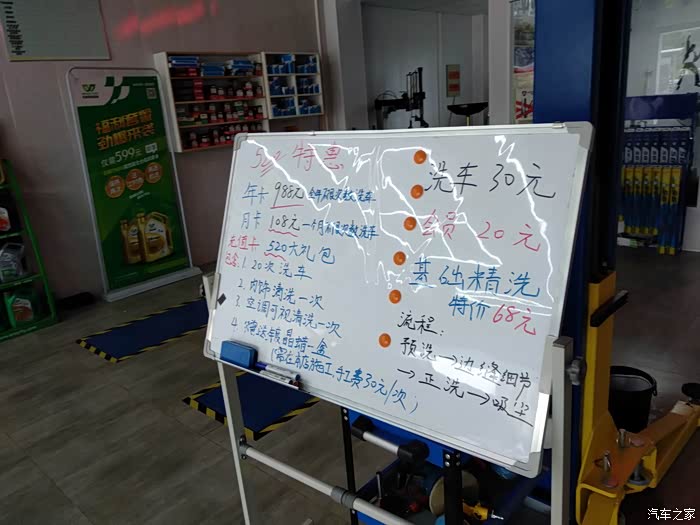 福利套餐
劲爆来袭
仅需599元
特惠
年卡 988元 全年不限次数洗车
月卡 108元 一个月不限次数洗车
充值卡 520大礼包
包含:1. 20次洗车
2. 内饰清洗一次
3. 空调可视清洗一次
4. 赠送镀晶蜡一盒
(需在本店施工,手工费30元/次);
洗车 30元
蜡 20元
基础精洗
特价 68元
流程:
预洗→边缝细节
→正洗→吸尘
汽车之家